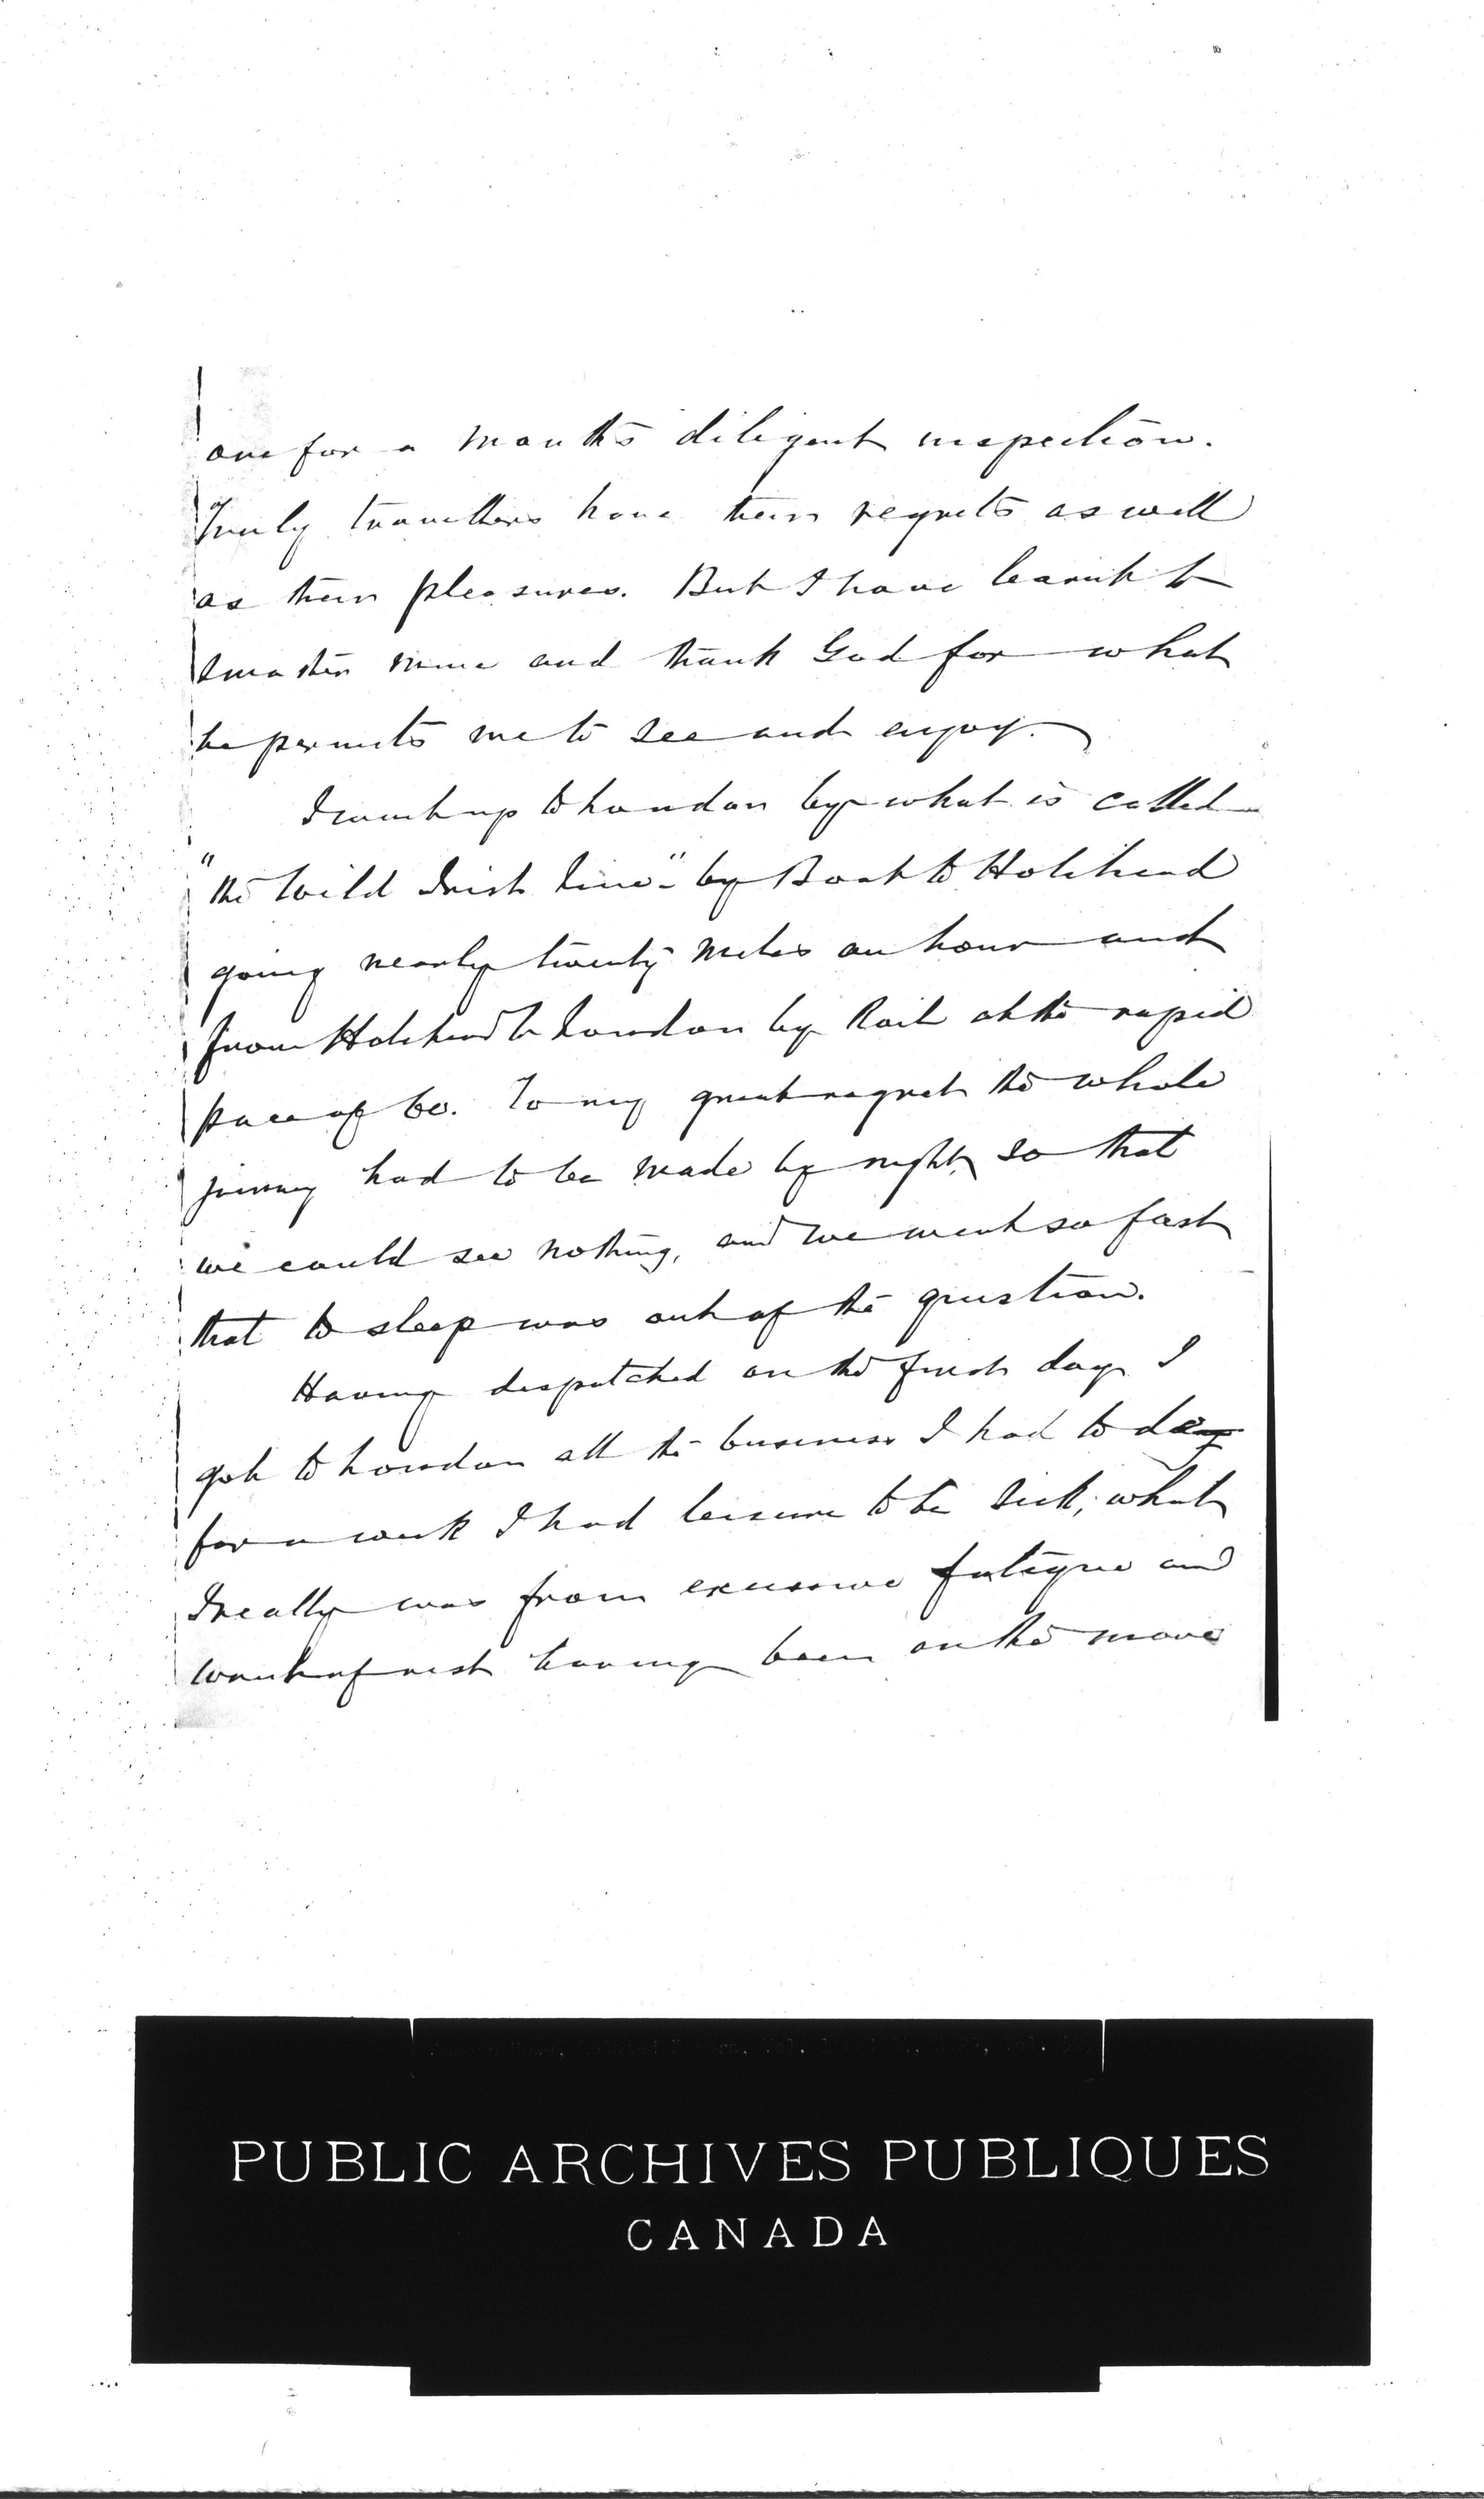 one for a month's diligent inspection.
Truly travellers have their regrets as well
as their pleasures. But I have learnt to
master mine and thank God for what
he permits me to see and enjoy.
I went up to London by what is called
"the Wild Irish line" by Boat to Holihead
going nearly twenty miles an hour and
from Holihead to London by Rail at the rapid
pace of 60. To my great regret the whole
journey had to be made by night, so that
we could see nothing, and we went so fast
that to sleep was out of the question.
Having despatched on the first day I
got to London all the business I had to do
for a week I had leisure to be sick, what
I really was from excessive fatigue and
want of rest having been on the move
PUBLIC ARCHIVES PUBLIQUES
CANADA